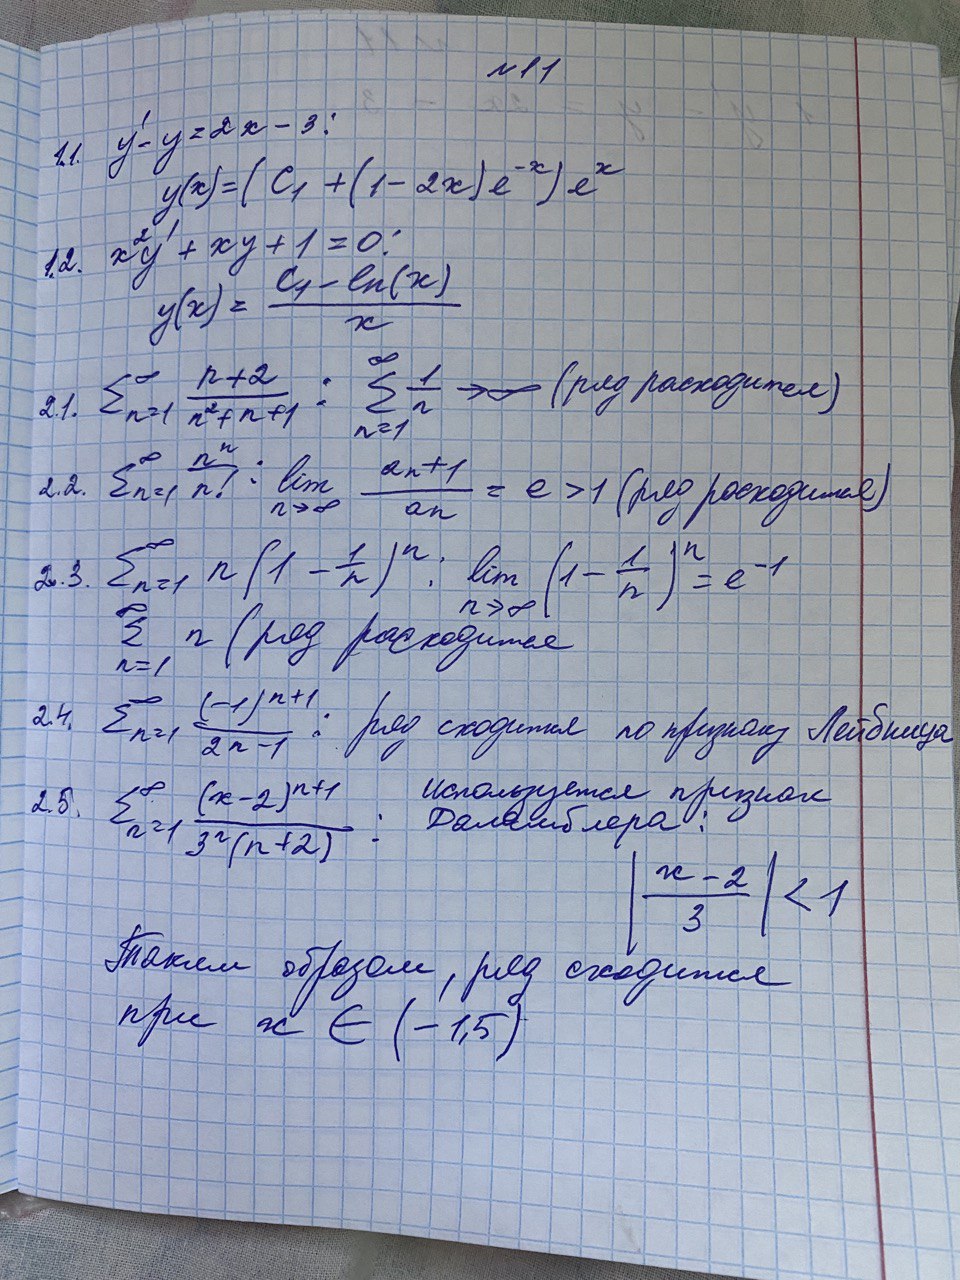 №11
1.1. y' - y = 2x - 3:
y(x) = (C₁ + (1 - 2x) e^{-x}) e^x
1.2. x²y' + xy + 1 = 0:
y(x) = \frac{C₁ - ln(x)}{x}
2.1. ∑_{n=1}^{∞} \frac{n+2}{n²+n+1} : ∑_{n=1}^{∞} \frac{1}{n} → ∞ (ряд расходится)
2.2. ∑_{n=1}^{∞} \frac{n^n}{n!} : lim_{n→∞} \frac{an+1}{an} = e > 1 (ряд расходится)
2.3. ∑_{n=1}^{∞} n (1 - \frac{1}{n})^n : lim_{n→∞} (1 - \frac{1}{n})^n = e^{-1}
∑_{n=1}^{∞} n (ряд расходится
2.4. ∑_{n=1}^{∞} \frac{(-1)^{n+1}}{2n-1} : ряд сходится по признаку Лейбница
2.5. ∑_{n=1}^{∞} \frac{(x-2)^{n+1}}{3^n(n+2)} : Используется признак
Даламблера:
|\frac{x-2}{3}| < 1
Таким образом, ряд сходится
при x ∈ (-1,5)